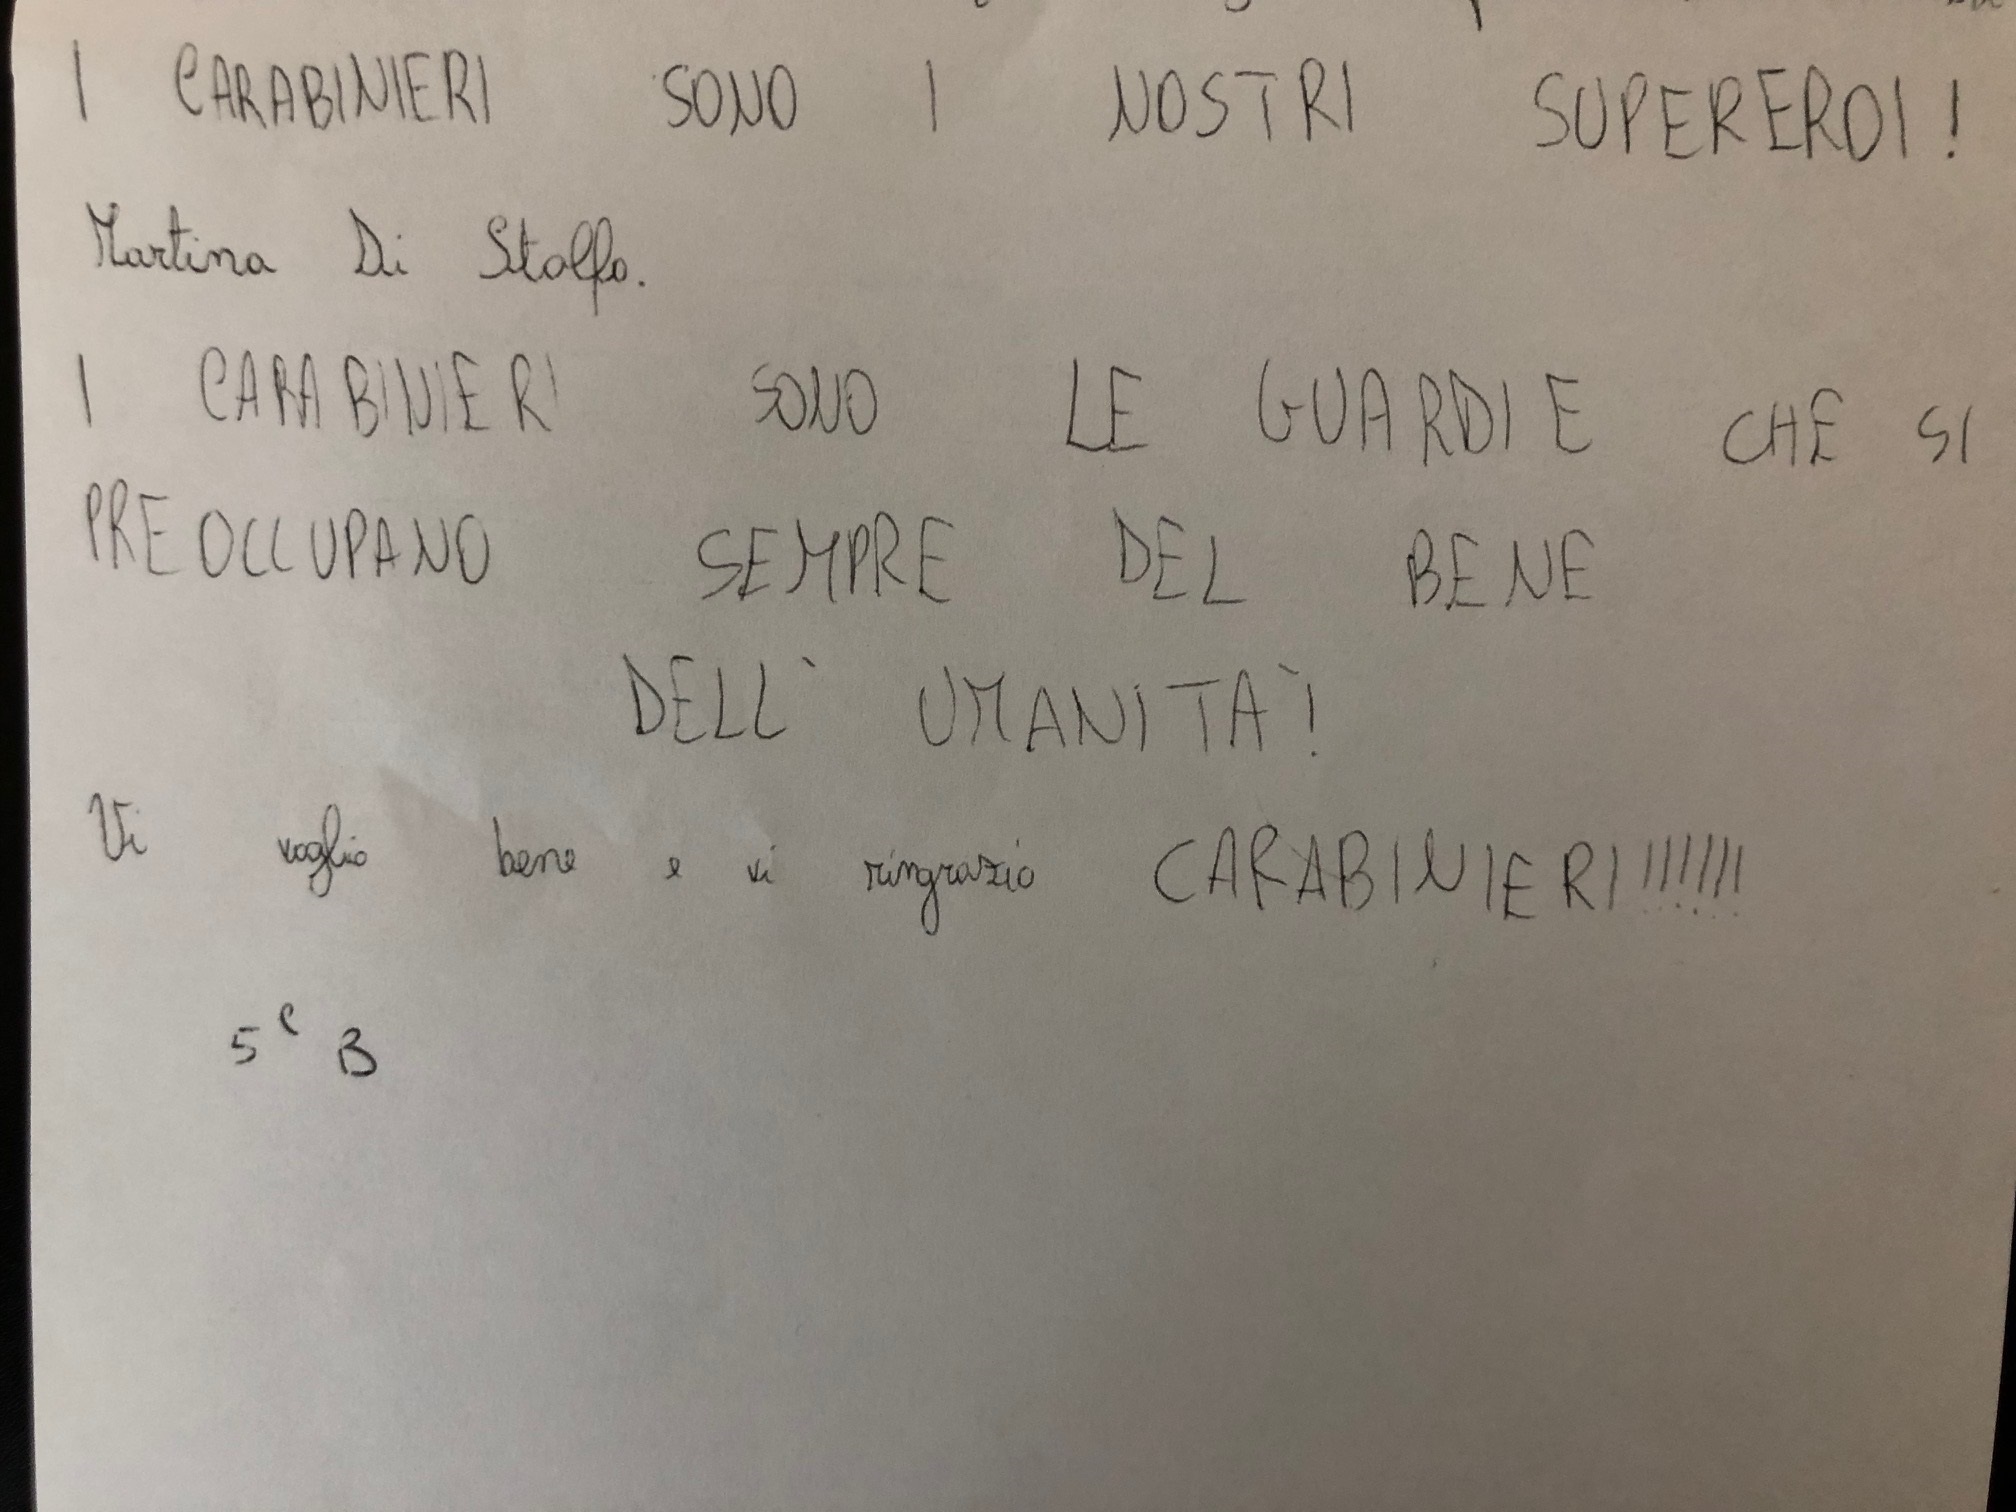 I CARABINIERI SONO I NOSTRI SUPEREROI!
Martina Di Stolfo.
I CARABINIERI SONO LE GUARDIE CHE SI
PREOCCUPANO SEMPRE DEL BENE
DELL` UMANITA`!
Vi voglio bene e vi ringrazio CARABINIERI!!!!!!
5^e B